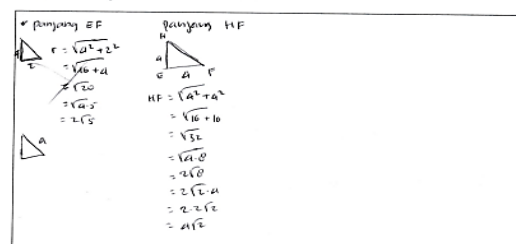 * Panjang EF
r = √4² + 2²
= √16 + 4
= √20
= √4.5
= 2√5
2
4
Panjang HF
H
4
E 4 F
HF = √4² + 4²
= √16 + 16
= √32
= √4.8
= 2√8
= 2√2.4
= 2.2√2
= 4√2